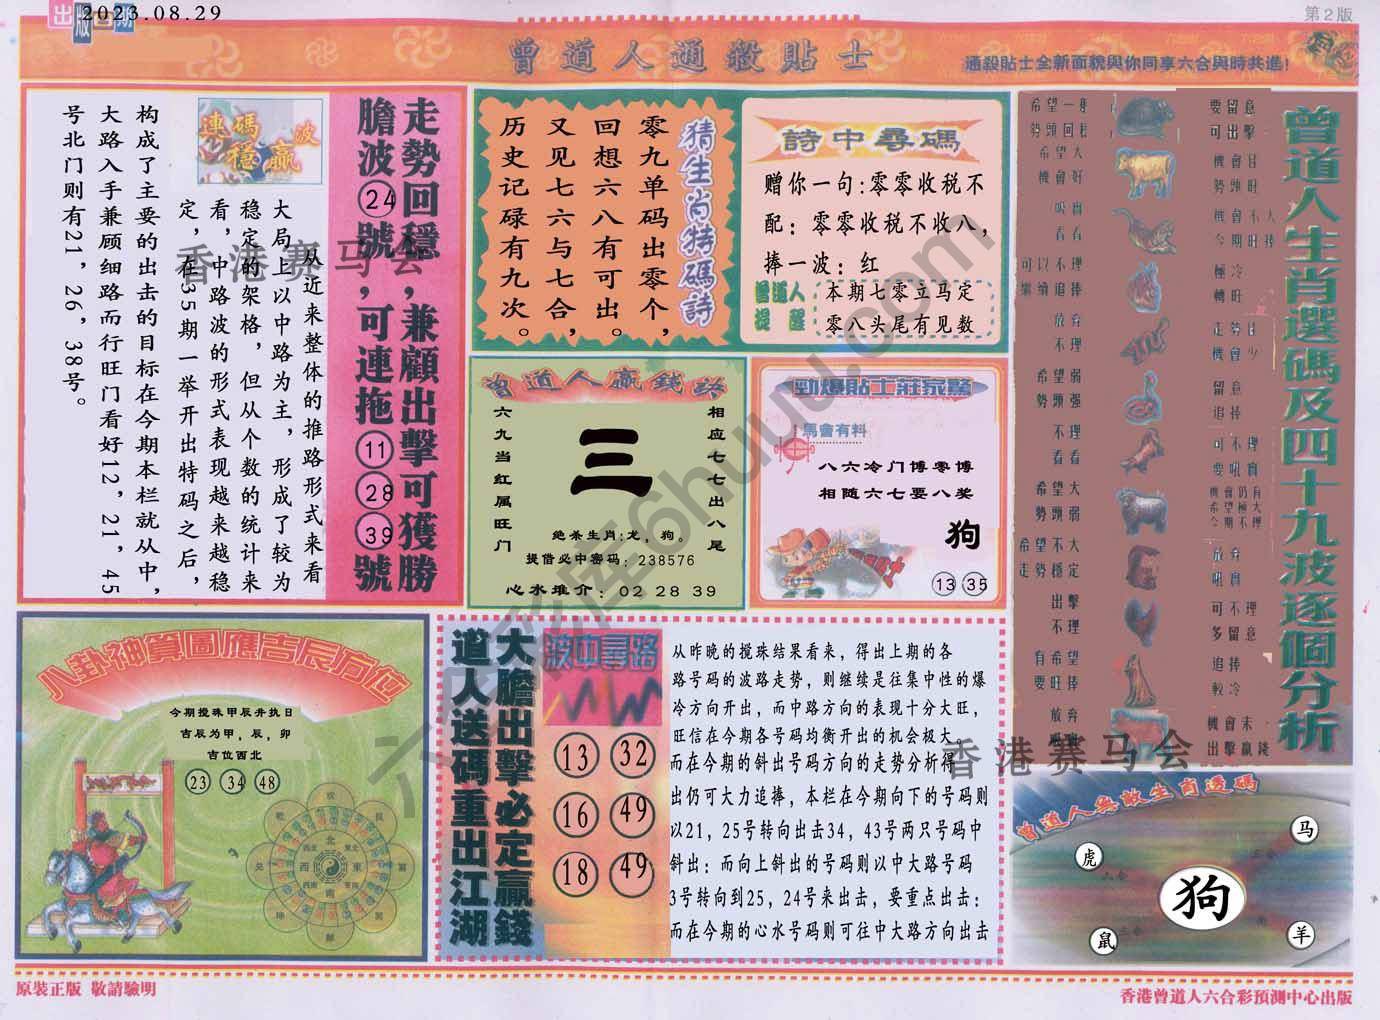 出版日期
2023.08.29
第2版
曾道人通殺貼士
通殺貼士全新面貌與你同享六合與時共進!
走勢回穩，兼顧出擊可獲勝
膽波24號，可連拖11 28 39號
連碼波
穩贏
从近来整体的推路形式来看
大局上以中路为主，形成了较为
稳定的架格，但从个数的统计来
看，中路波的形式表现越来越稳
定，在35期一举开出特码之后，
构成了主要的出击的目标在今期本栏就从中，
大路入手兼顾细路而行旺门看好12，21，45
号北门则有21，26，38号。
猜生肖特碼詩
零九单码出零个，
回想六八有可出。
又见七六与七合，
历史记碌有九次。
詩中尋碼
赠你一句:零零收税不
配：零零收税不收八，
捧一波：红
曾道人
提醒
本期七零立马定
零八头尾有见数
曾道人赢錢诀
相应七七出八尾
三
六九当红属旺门
绝杀生肖:龙，狗。
提借必中密码：238576
心水堆介：02 28 39
勁爆貼士莊家驚
馬會有料
八六冷门博零博
相随六七要八奖
狗
13 35
曾道人生肖選碼及四十九波逐個分析
希望一乗
勢頭回穩
要留意
可出擊
希望大
機會好
機會佳
勢頭旺
吸實
看看
機會不大
今期旺捧
可以不理
繼續追捧
極冷
轉旺
放弃
不理
走勢佳
機會少
希望弱
勢頭强
留意
追捧
不理
看看
可不理
要吼實
希望大
勢頭弱
機會仍有
希望極大
今期不理
希望不大
走勢穩定
放弃
吼實
出擊
不理
可不理
多留意
有希望
要旺捧
追捧
較冷
放弃
吼實
機會未
出擊贏錢
八卦神算圖應吉辰方位
今期搅珠甲辰并执日
吉辰为甲，辰，卯
吉位西北
23 34 48
大膽出擊必定贏錢
道人送碼重出江湖
波中尋路
13 32
16 49
18 49
从昨晚的搅珠结果看来，得出上期的各
路号码的波路走势，则继续是往集中性的爆
冷方向开出，而中路方向的表现十分大旺，
旺信在今期各号码均衡开出的机会极大。
而在今期的斜出号码方向的走势分析得
出仍可大力追捧，本栏在今期向下的号码则
以21，25号转向出击34，43号两只号码中
斜出：而向上斜出的号码则以中大路号码
3号转向到25，24号来出击，要重点出击：
而在今期的心水号码则可往中大路方向出击
曾道人無敵生肖透碼
马
虎
狗
鼠
羊
香港赛马会
香港赛马会
六彩库6huuu.com
原裝正版 敬請驗明
香港曾道人六合彩預測中心出版